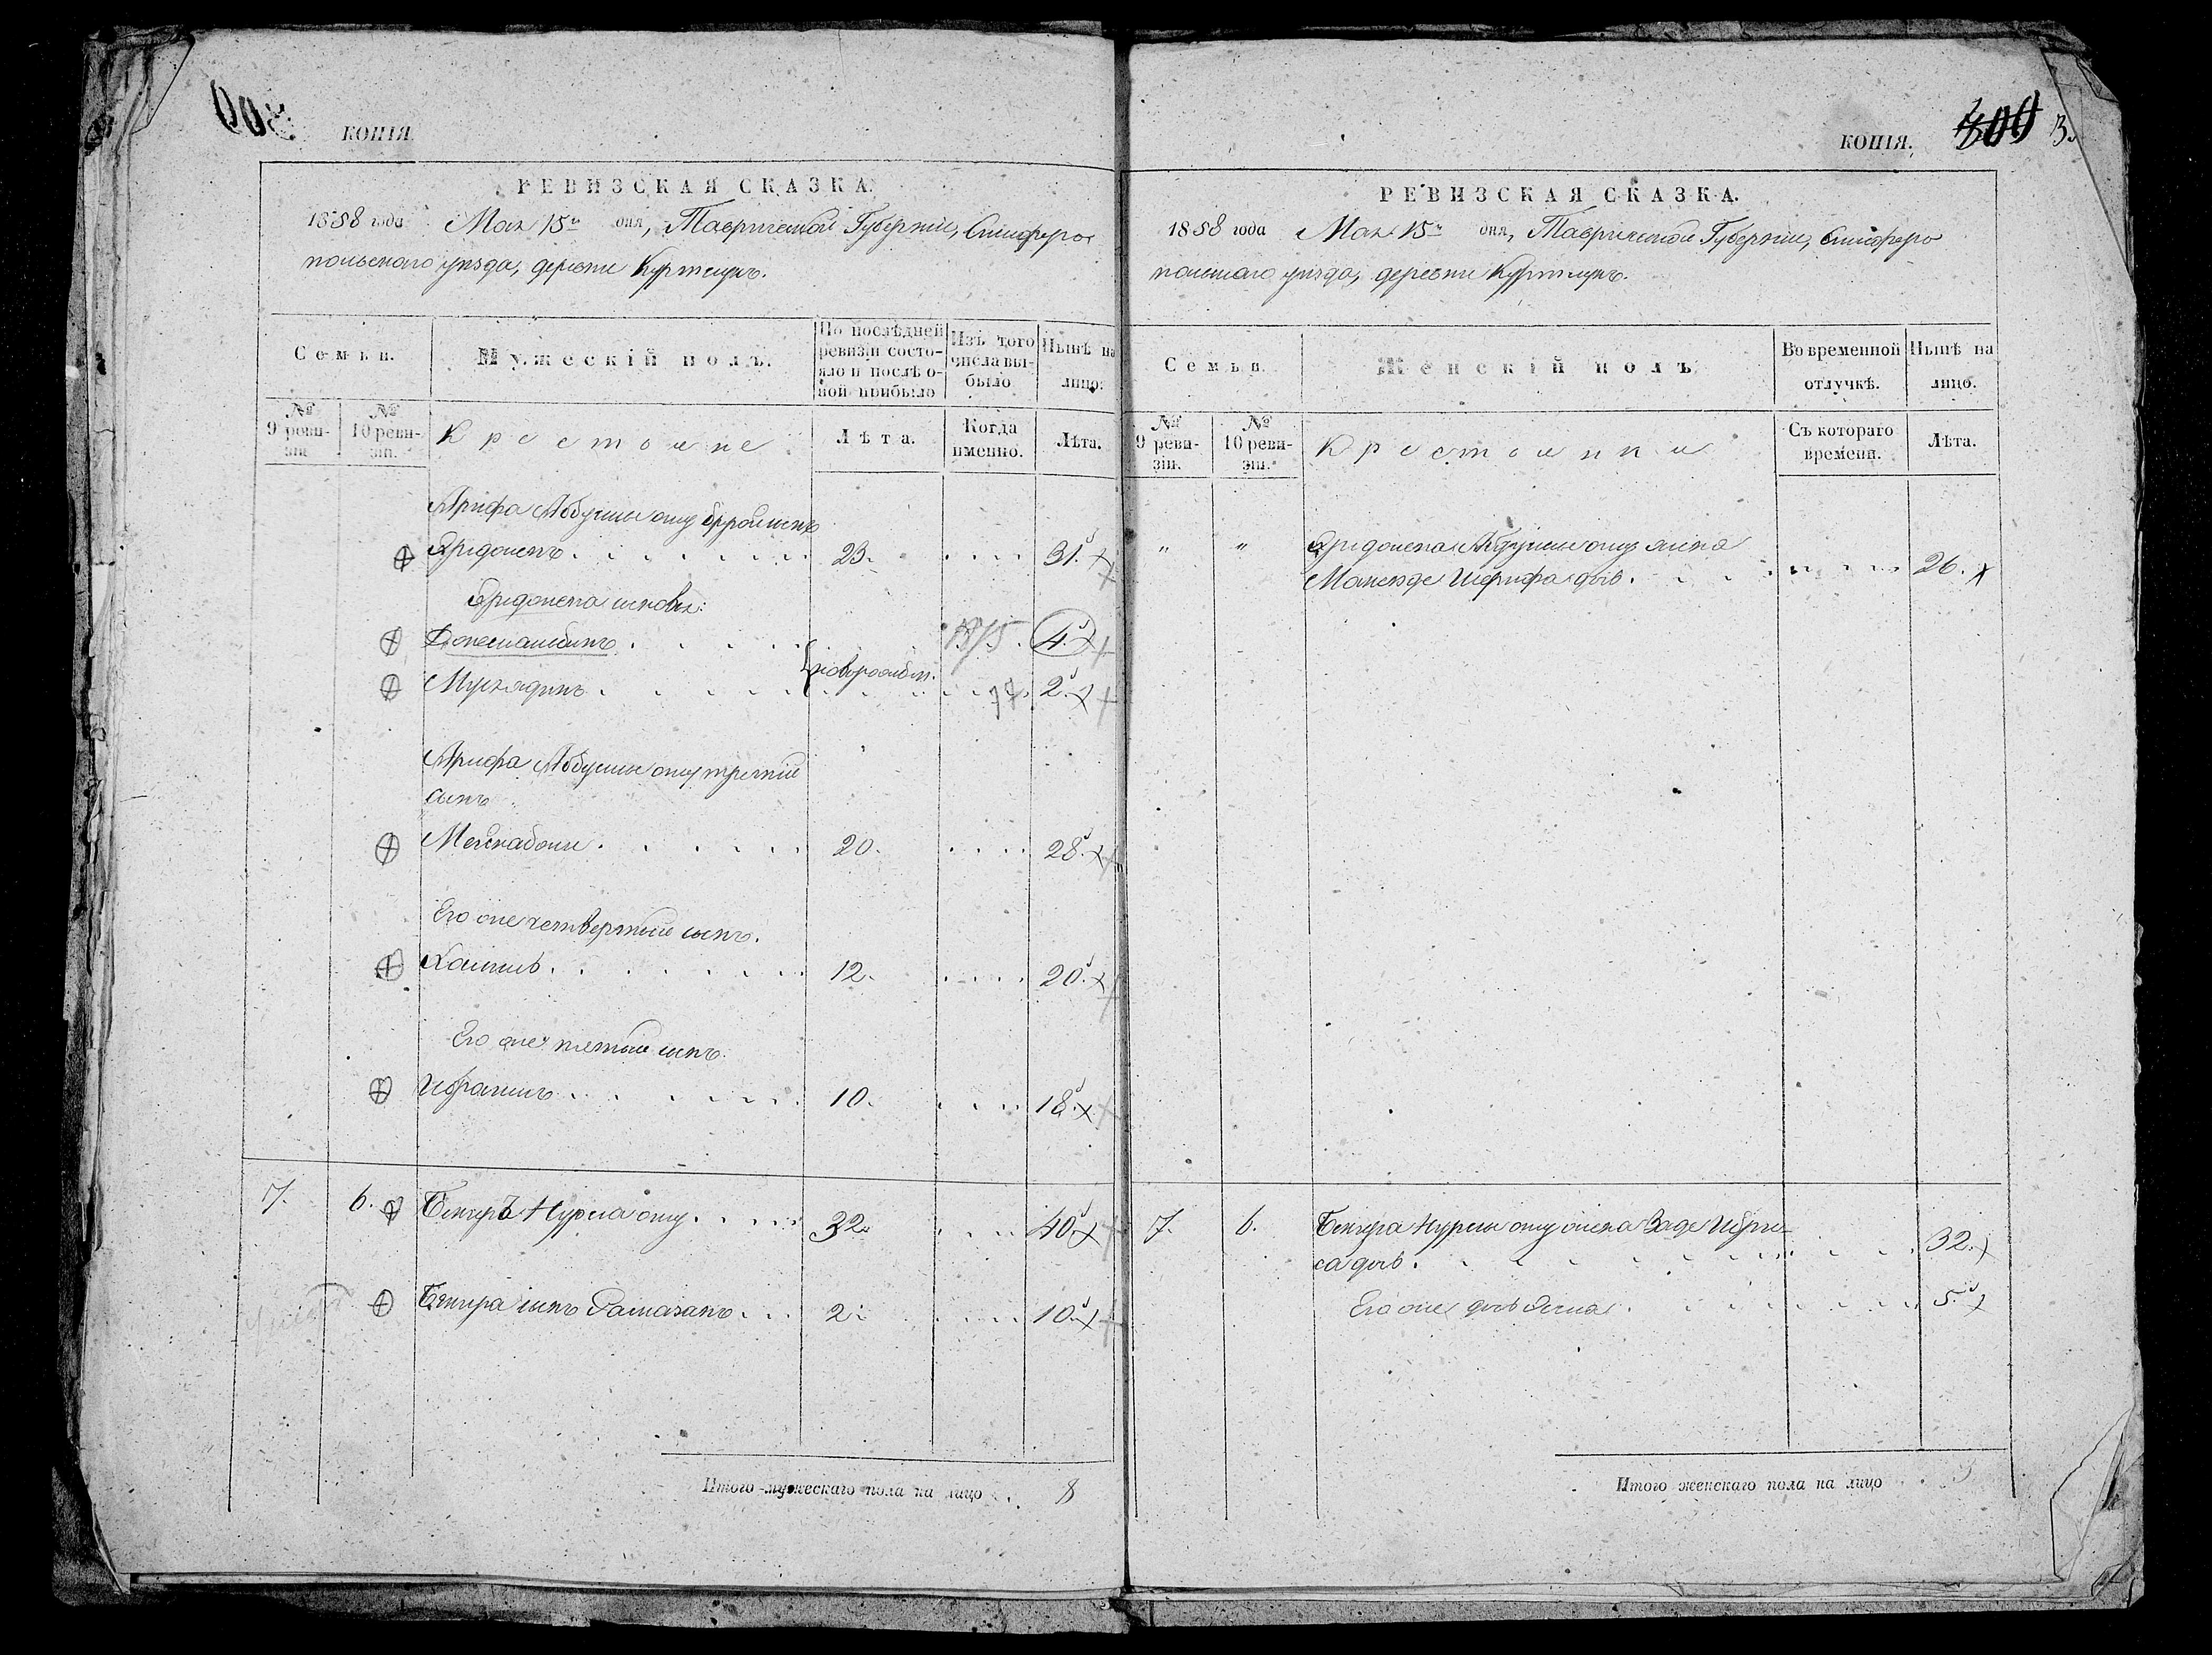 КОПІЯ.
РЕВИЗСКАЯ СКАЗКА.
1858 года Мая 15го дня, Таврической Губерніи, Симферо
польскаго уѣзда, деревни Куртлукъ.
Семьи.
Мужескій полъ.
По послѣдней ревизіи состояло и послѣ оной прибыло
Изъ того числа выбыло
Нынѣ на лицо.
№ 9 ревизіи.
№ 10 ревизіи.
Крестьяне
Лѣта.
Когда именно.
Лѣта.
Арифа Абдуллы оглу второй сынъ
23. 31.
сыновья:
новорожден.
1875. 4.
77. 2.
Арифа Абдуллы оглу третий
сынъ
20. 28.
Его же четвертый сынъ.
Халиль 12. 20.
Его же пятый сынъ.
Ибрагимъ 10. 18.
7. 6. Бекиръ Нурла оглу 32. 40.
Бекира сынъ Рамазанъ 2. 10.
Итого мужескаго пола на лицо 8
КОПІЯ. 13.
РЕВИЗСКАЯ СКАЗКА.
1858 года Мая 15го дня, Таврической Губерніи, Симферо
польскаго уѣзда, деревни Куртлукъ.
Семьи.
Женскій полъ.
Во временной отлучкѣ.
Нынѣ на лицо.
№ 9 ревизіи.
№ 10 ревизіи.
Крестьянки
Съ котораго времени.
Лѣта.
" " Абдуллы оглу жена
Шерифа дочь 26.
7. 6. Бекира Нурлы оглу жена Заде Идри-
са дочь 32.
Его же дочь 5.
Итого женскаго пола на лицо 3